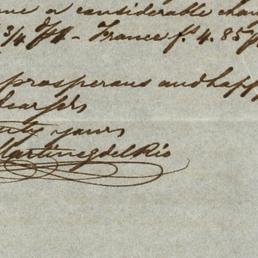 a considerable chan
3/4 France fs 4.85
prosperous and happ
yours
Martinez del Rio